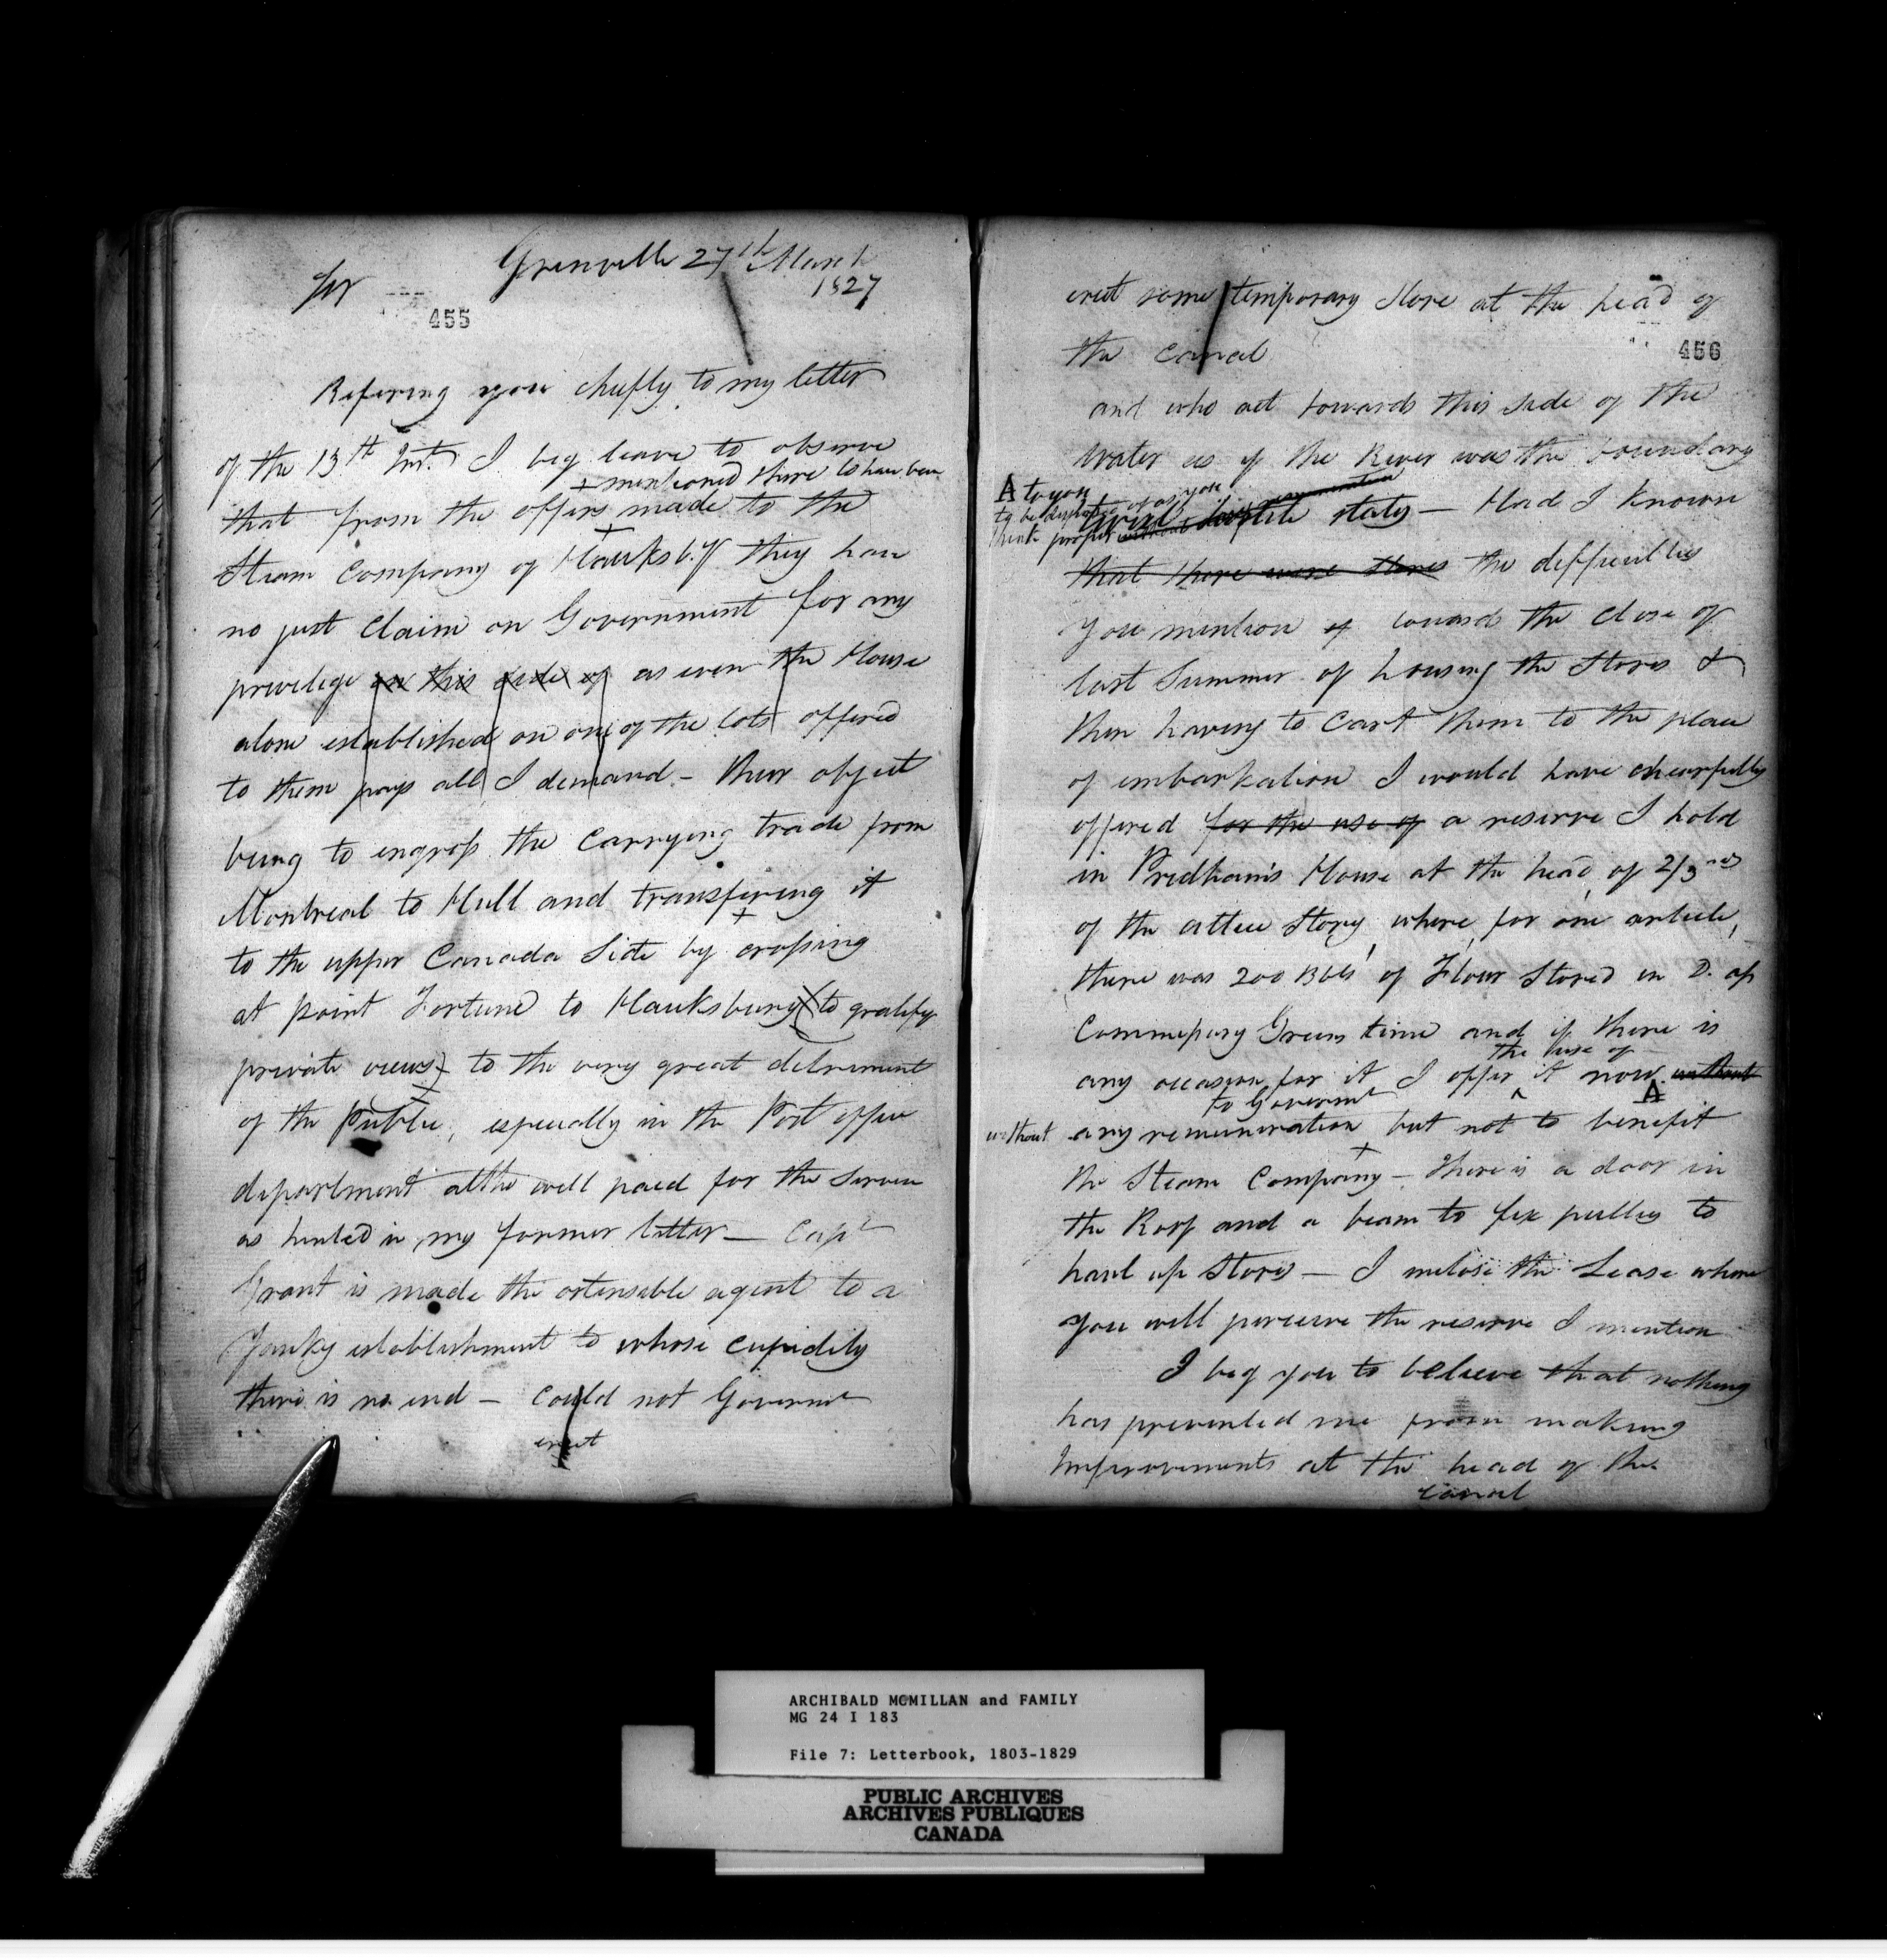 Grenville 27th March
1827
Sir
455
Refering you chiefly to my letter
of the 13th Inst. I beg leave to observe
+ mentioned there to have been
that from the offers made to the
Steam Company of Hauksby. They have
no just Claim on Government for any
privilege on this side of as even the House
alone established on one of the lots offered
to them pays all I demand - Their object
being to engross the Carrying trade from
Montreal to Hull and transfering it
to the upper Canada Side by crossing
at point Fortune to Hauksbury (to gratify
private views) to the very great detriment
of the Public, especially in the Post office
department altho well paid for the Service
as hinted in my former letter — Capt
Grant is made the ostensible agent to a
Yanky establishment to whose cupidity
there is no end — Could not Governmt
erect
erect some temporary Store at the head of
the Canal
456
and who act towards this side of the
Water as if the River was the boundary
A to you
to be disposed of as you
think proper
hostile states — Had I known
that there were Stores the difficulties
You mention of towards the Close of
last Summer of housing the Stores &
then having to Cart them to the place
of embarkation I would have chearfully
offered for the use of a reserve I hold
in Pridham's House at the head of 2/3rds
of the attic Story, where, for one article,
there was 200 Bbls of Flour Stored in D. as
Commissary Greens time and if there is
the use of
any occasion for it I offer ^ it now without
A
to Governmt
without any remuneration but not to benefit
the Steam Company — There is a door in
the Roof and a beam to fix pullies to
haul up Stores — I inclose the Lease where
You will perceive the reserve I mention
I beg you to believe that nothing
has prevented me from making
Improvements at the head of the
Canal
ARCHIBALD MCMILLAN and FAMILY
MG 24 I 183
File 7: Letterbook, 1803-1829
PUBLIC ARCHIVES
ARCHIVES PUBLIQUES
CANADA